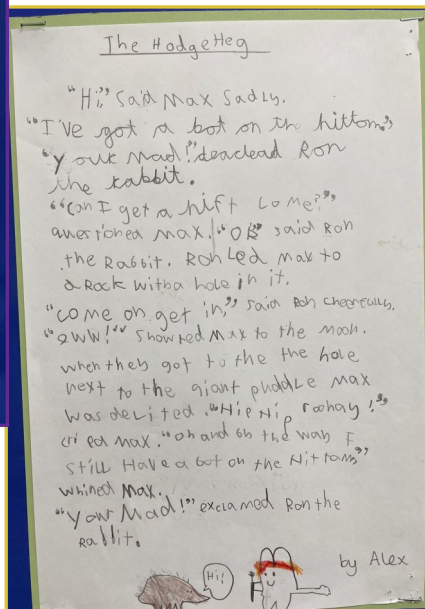 The HodgeHeg
"Hi," said Max sadly.
"I've got a bot on the hittom,"
"Your Mad!" deaclead Ron
the rabbit.
"Can I get a hift lome?"
questioned Max. "OK" said Ron
the Rabbit. Ron Led Max to
a Rock with a hole in it.
"come on get in," said Ron cheerfully.
"oww!" showted Max to the moon.
when they got to the the hole
next to the giant puddle Max
was delited. "Hip Hip roohay!"
cried Max. "oh and on the way I
still Have a bot on the Hittom,"
whined Max.
"Your Mad!" exclamed Ron the
Rabbit.
Hi!
by Alex